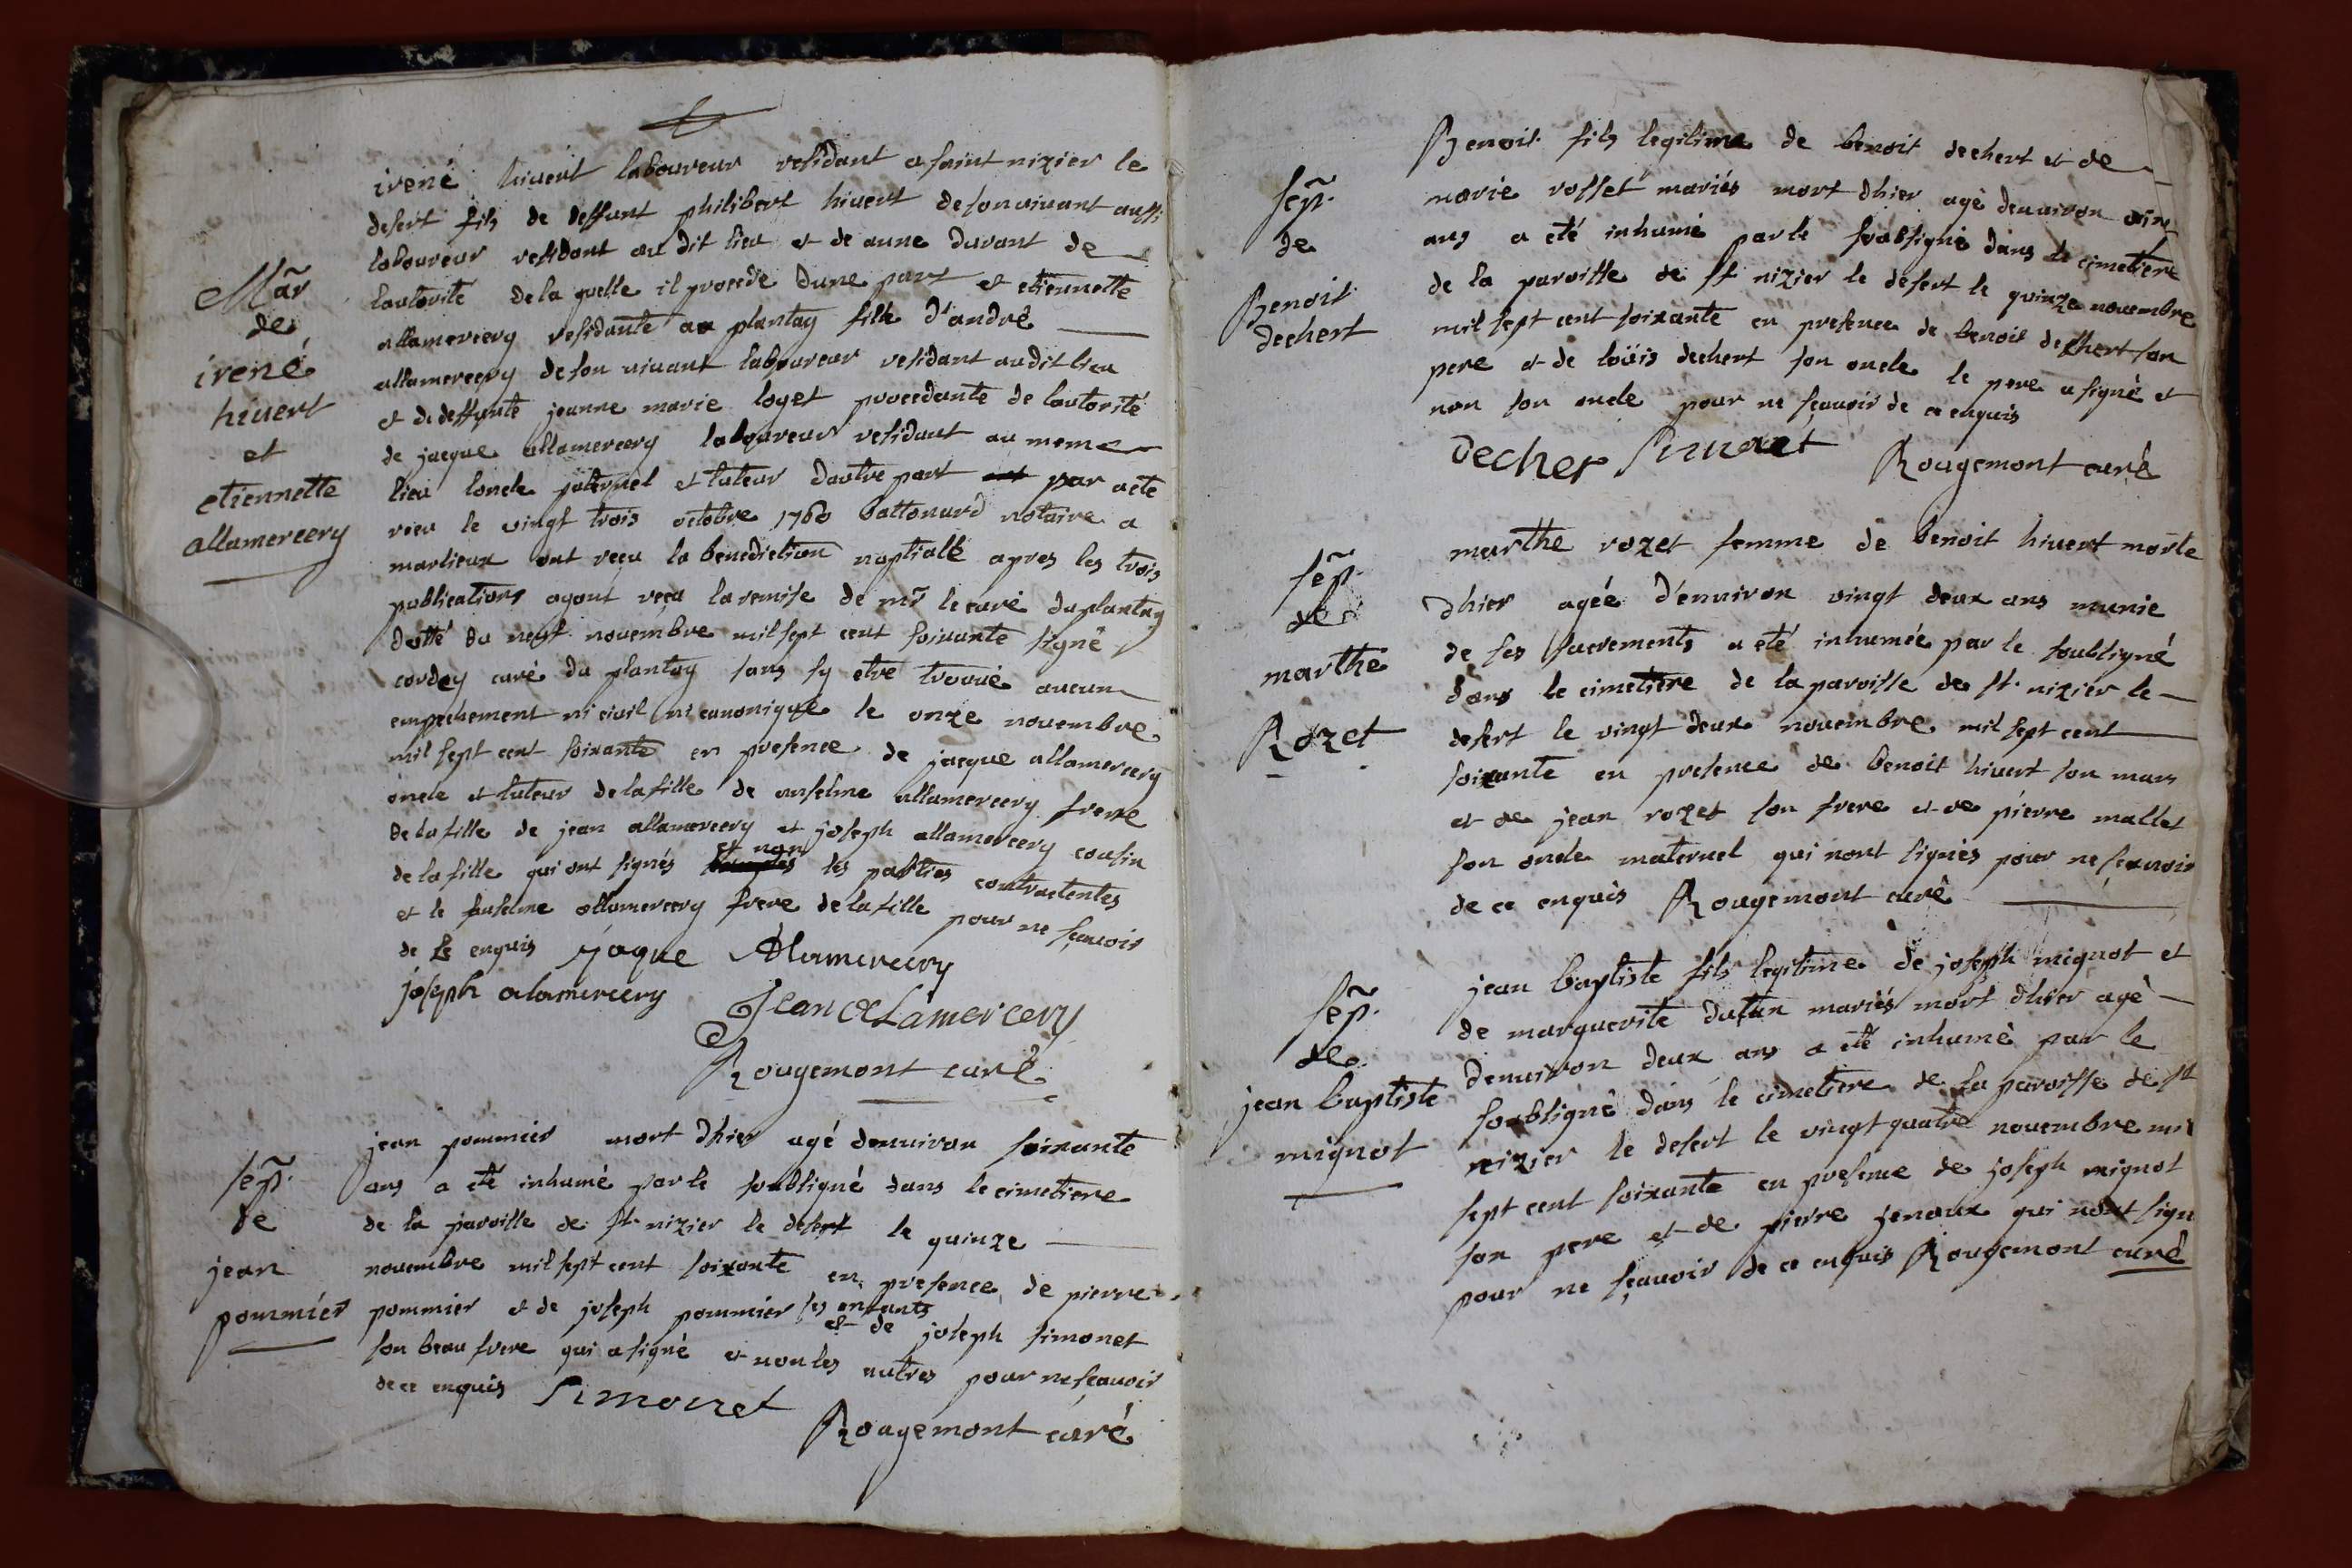 Mãr
de
irené
hivert
et
etiennette
allamercery
irené hivert laboureur residant a saint nizier le
desert fils de deffunt philibert hivert de son vivant aussi
laboureur residant au dit lieu et de anne durant de
lautorité de la quelle il procede dune part et etiennette
allamercery residante au plantay fille d'andré
allamercery de son vivant laboureur residant au dit lieu
et de deffunte jeanne marie loget procedante de lautorité
de jacque allamercery laboureur residant au meme
lieu loncle paternel et tuteur dautre part par acte
reçu le vingt trois octobre 1760 battonard notaire a
marlieux ont reçu la benediction nuptialle apres les trois
publications ayant reçu la remise de mr le curé du plantay
datté du neuf novembre mil sept cent soixante signé
cordey curé du plantay sans sy etre trouvé aucun
empechement ni civil ni canonique le onze novembre
mil sept cent soixante en presence de jacque allamercery
oncle et tuteur de la fille de anselme allamercery frere
de la fille de jean allamercery et joseph allamercery cousin
de la fille qui ont signés et non les parties contractentes
et le anselme allamercery frere de la fille pour ne sçavoir
de ce enquis jaque Alamercery
joseph alamercery
Jean alamercery
Rougemont curé
sep̃.
de
jean
pommier
jean pommier mort dhier agé denviron soixante
ans a eté inhumé par le soubsigné dans le cimetiere
de la paroisse de st nizier le desert le quinze
novembre mil sept cent soixante en presence de pierre
pommier et de joseph pommier ses enfants et de joseph simonet
son beau frere qui a signé et non les autres pour ne sçavoir
de ce enquis Simonet
Rougemont curé
sep̃.
de
Benoit
dechert
Benoit fils legitime de benoit dechert et de
marie rosset mariés mort dhier agé denviron cinq
ans a eté inhumé par le soubsigné dans le cimetiere
de la paroisse de st nizier le desert le quinze novembre
mil sept cent soixante en presence de benoit dechert son
pere et de loüis dechert son oncle le pere a signé et
non son oncle pour ne sçavoir de ce enquis
Decher
Rougemont curé
sep̃.
de
marthe
Rozet
marthe rozet femme de benoit hivert morte
dhier agée d'environ vingt deux ans munie
de ses sacrements a eté inhumée par le soubsigné
dans le cimetiere de la paroisse de st. nizier le
desert le vingt deux novembre mil sept cent
soixante en presence de benoit hivert son mari
et de jean rozet son frere et de pierre mallet
son oncle maternel qui nont signés pour ne sçavoir
de ce enquis Rougemont curé
sep̃.
de
jean baptiste
mignot
jean baptiste fils legitime de joseph mignot et
de marguerite dutan mariés mort dhier agé
denviron deux ans a eté inhumé par le
soubsigné dans le cimetiere de la paroisse de st
nizier le desert le vingt quatre novembre mil
sept cent soixante en presence de joseph mignot
son pere et de pierre jenoux qui nont sign
pour ne sçavoir de ce enquis Rougemont curé